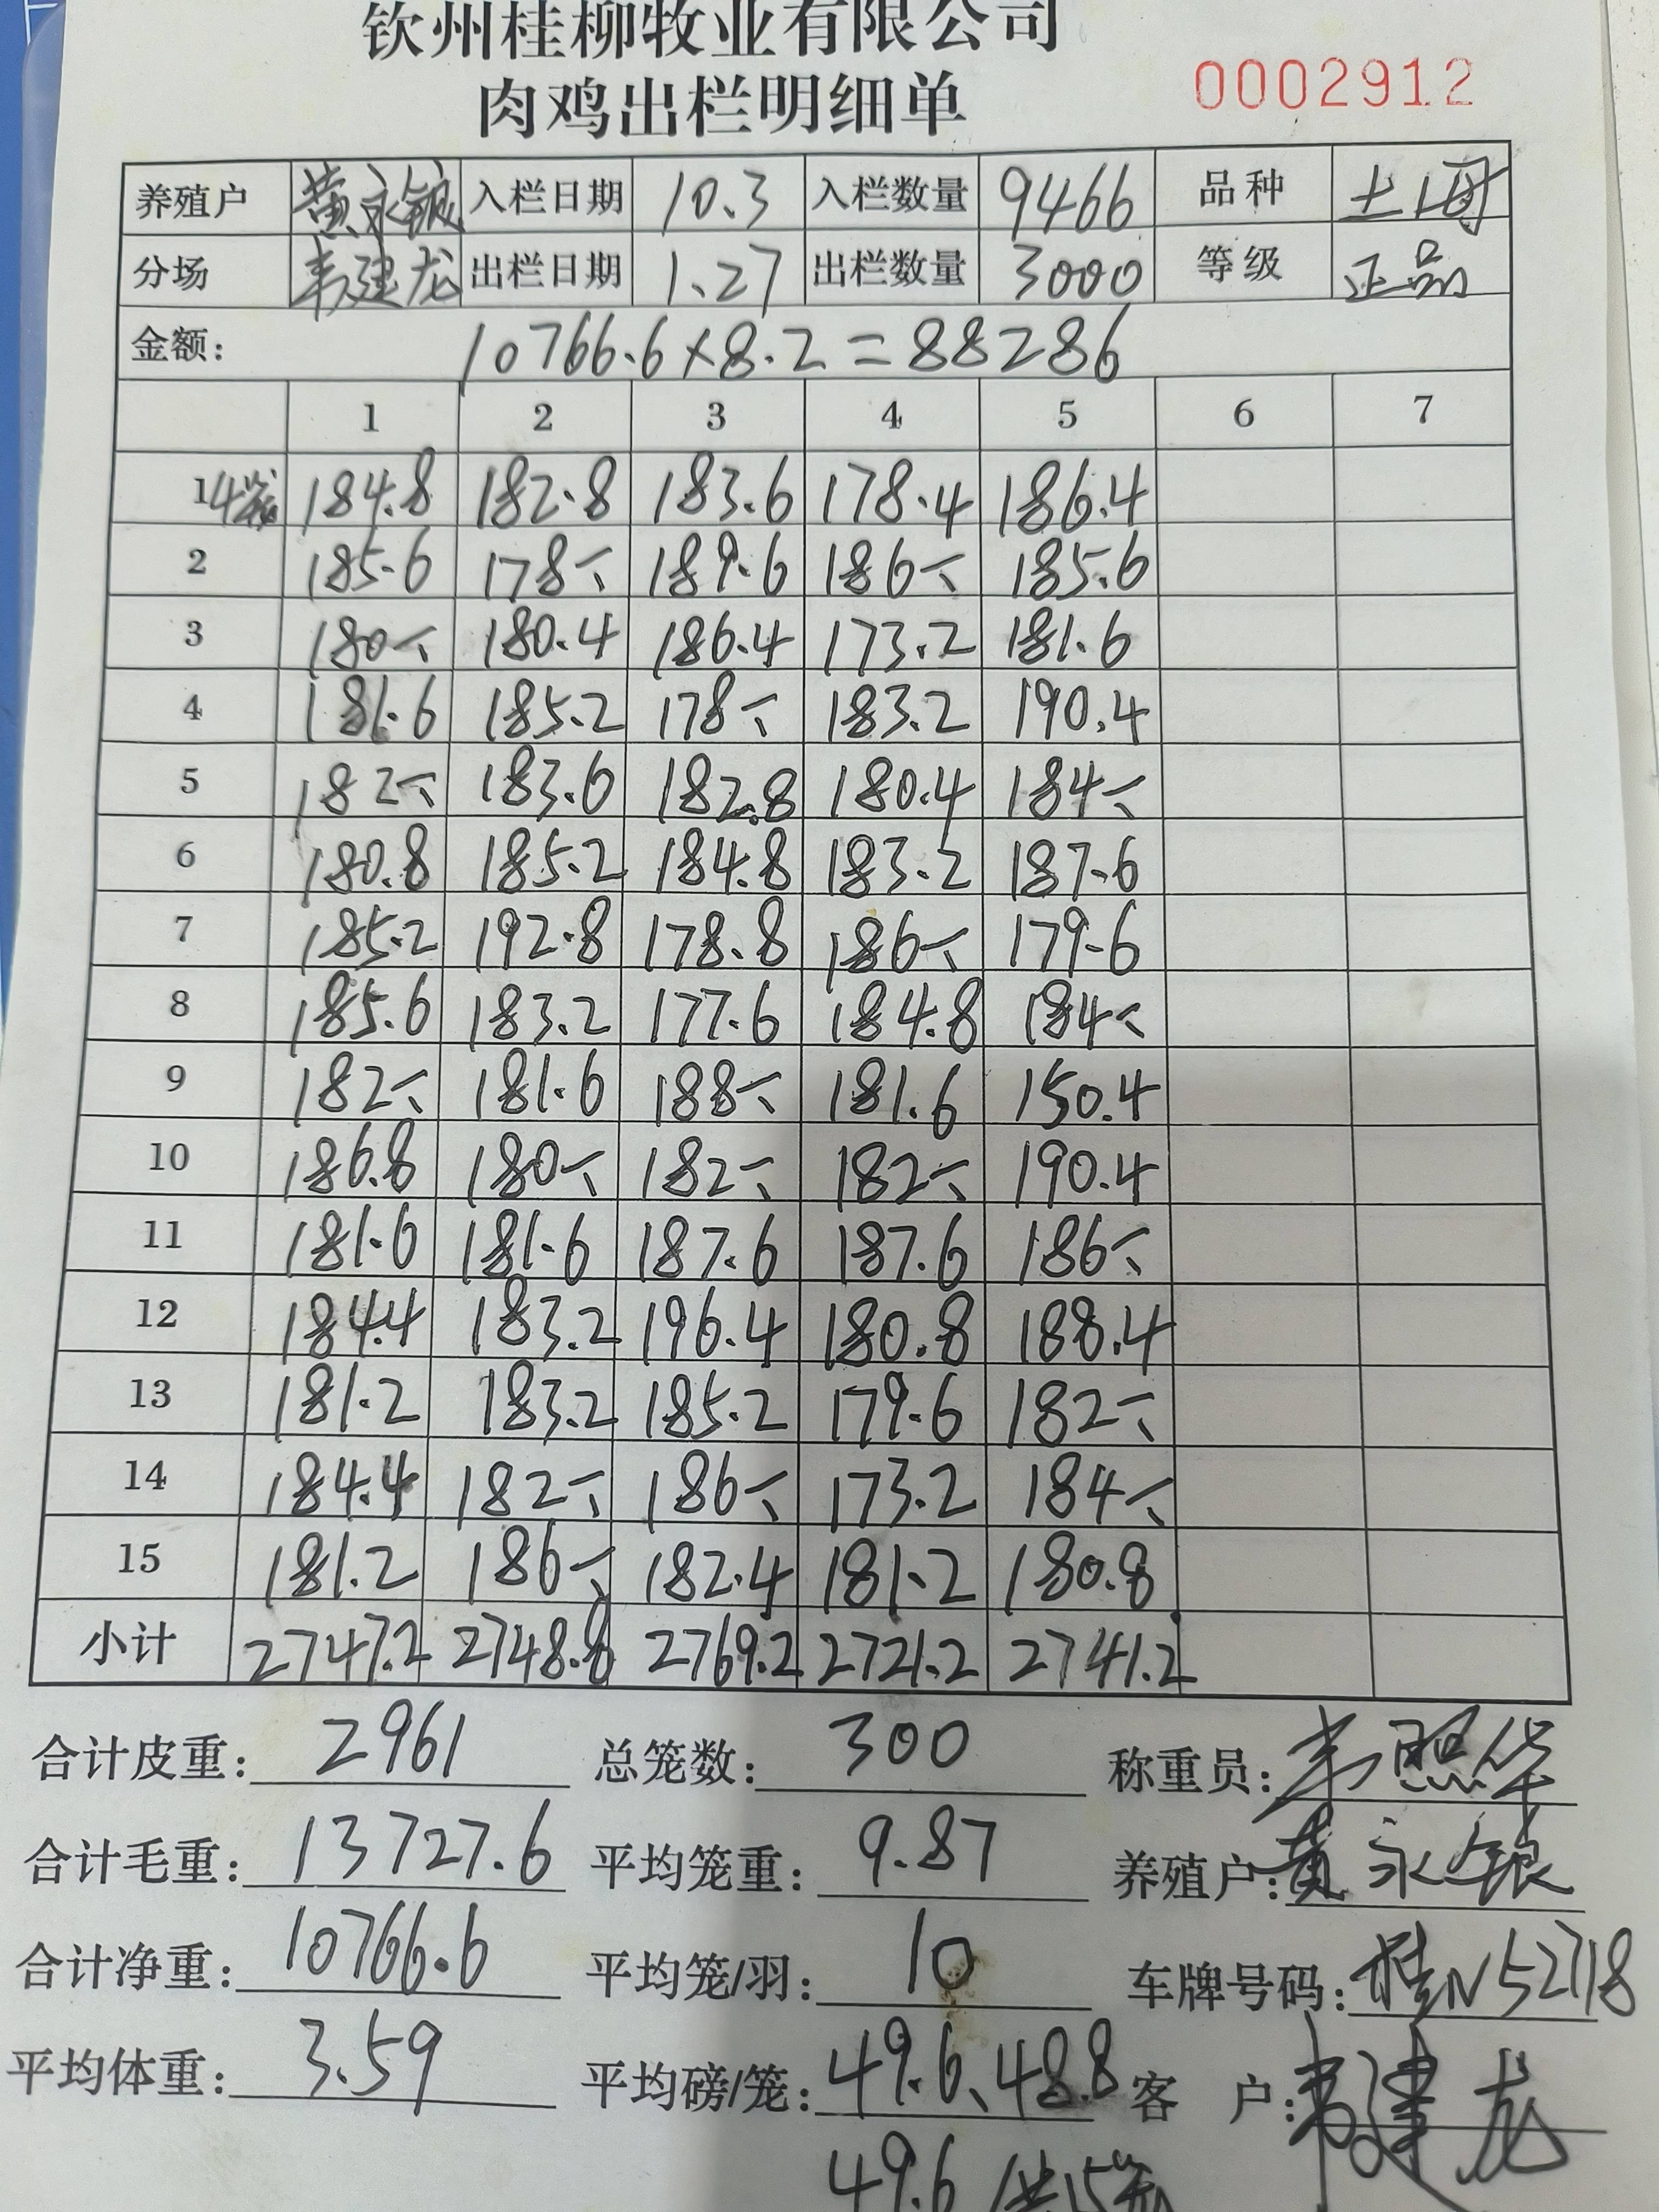 钦州桂柳牧业有限公司
肉鸡出栏明细单
0002912
养殖户 黄永银 入栏日期 10.3 入栏数量 9466 品种
分场 韦建龙 出栏日期 1.27 出栏数量 3000 等级 正品
金额: 10766.6×8.2=88286
1 2 3 4 5 6 7
1 4笼 184.8 182.8 183.6 178.4 186.4
2 185.6 178.- 189.6 186.- 185.6
3 180.- 180.4 186.4 173.2 181.6
4 181.6 185.2 178.- 183.2 190.4
5 182.- 183.6 182.8 180.4 184.-
6 180.8 185.2 184.8 183.2 187.6
7 185.2 192.8 178.8 186.- 179.6
8 185.6 183.2 177.6 184.8 184.-
9 182.- 181.6 188.- 181.6 150.4
10 186.8 180.- 182.- 182.- 190.4
11 181.6 181.6 187.6 187.6 186.-
12 184.4 183.2 196.4 180.8 188.4
13 181.2 183.2 185.2 179.6 182.-
14 184.4 182.- 186.- 173.2 184.-
15 181.2 186.- 182.4 181.2 180.8
小计 2747.2 2748.8 2769.2 2721.2 2741.2
合计皮重: 2961 总笼数: 300 称重员: 韦照华
合计毛重: 13727.6 平均笼重: 9.87 养殖户: 黄永银
合计净重: 10766.6 平均笼/羽: 10 车牌号码: 桂N52718
平均体重: 3.59 平均磅/笼: 49.6、48.8 客 户: 韦建龙
49.6 共15笼